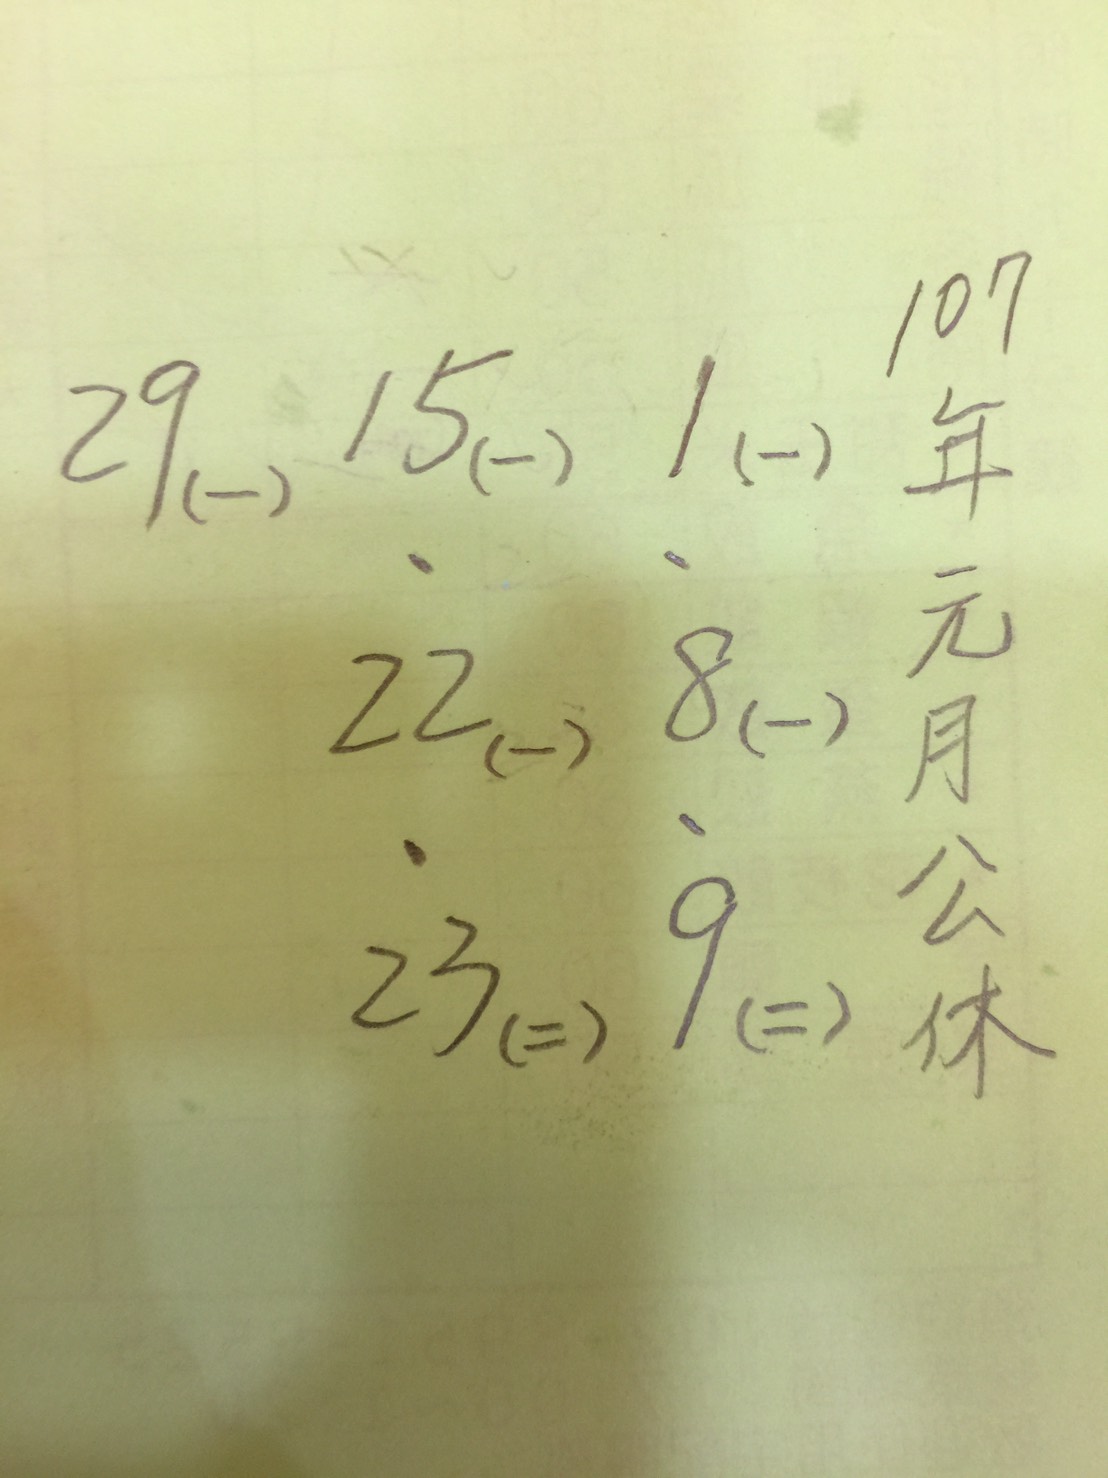 107年元月公休
1(一)、8(一)、9(二)
15(一)、22(一)、23(二)
29(一)